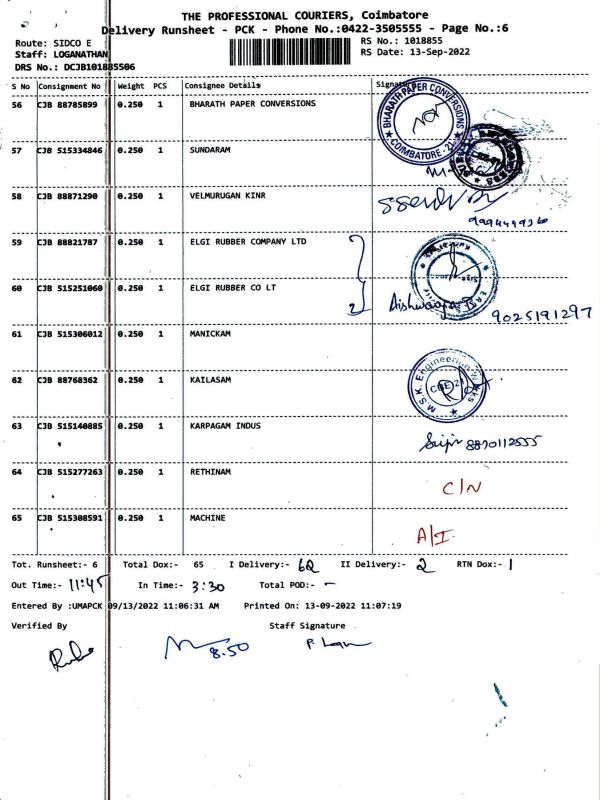 THE PROFESSIONAL COURIERS, Coimbatore
Delivery Runsheet - PCK - Phone No.:0422-3505555 - Page No.:6
Route: SIDCO E
RS No.: 1018855
Staff: LOGANATHAN
RS Date: 13-Sep-2022
DRS No.: DCJB101885506
S No Consignment No Weight PCS Consignee Details Signature
56 CJB 88785899 0.250 1 BHARATH PAPER CONVERSIONS
BHARATH PAPER CONVERSIONS COIMBATORE - 21
57 CJB 515334846 0.250 1 SUNDARAM
58 CJB 88871290 0.250 1 VELMURUGAN KINR
59 CJB 88821787 0.250 1 ELGI RUBBER COMPANY LTD
60 CJB 515251060 0.250 1 ELGI RUBBER CO LT
2
9025191297
61 CJB 515306012 0.250 1 MANICKAM
62 CJB 88768362 0.250 1 KAILASAM
M.S.K. Engineering Works
63 CJB 515140885 0.250 1 KARPAGAM INDUS
8870112555
64 CJB 515277263 0.250 1 RETHINAM C/N
65 CJB 515308591 0.250 1 MACHINE A/I
Tot. Runsheet:- 6 Total Dox:- 65 I Delivery:- 62 II Delivery:- 2 RTN Dox:- 1
Out Time:- 11:45 In Time:- 3:30 Total POD:- -
Entered By :UMAPCK 09/13/2022 11:06:31 AM Printed On: 13-09-2022 11:07:19
Verified By Staff Signature
8.50